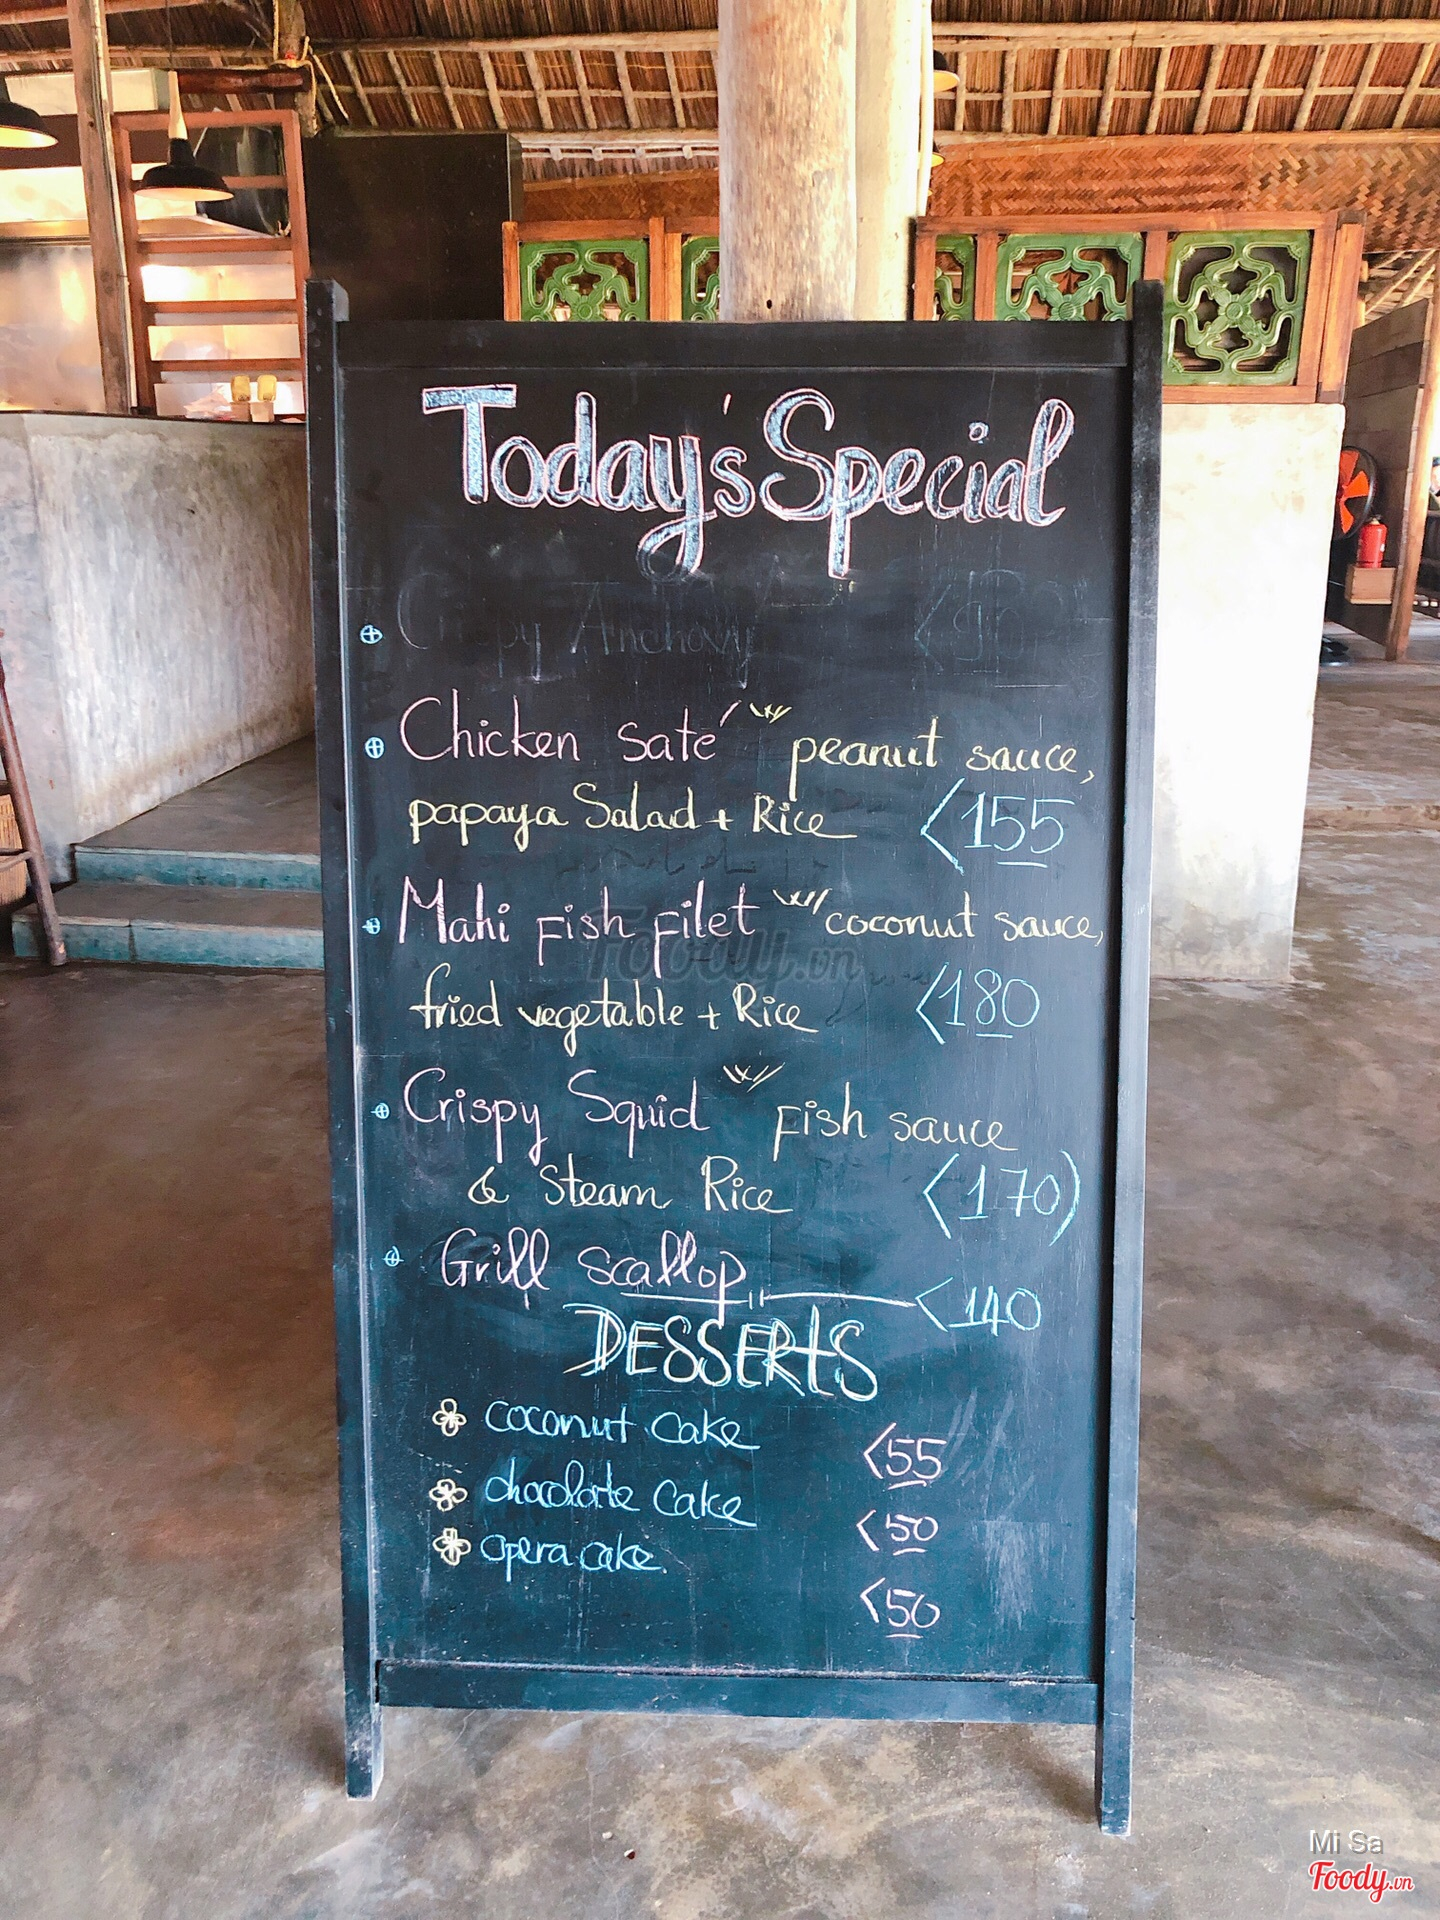 Today's Special
Crispy Anchovy <90
Chicken saté w/ peanut sauce,
papaya Salad + Rice <155
Mahi Fish Filet w/ coconut sauce,
fried vegetable + Rice <180
Crispy Squid w/ Fish sauce
& Steam Rice <170)
Grill Scallop <140
DESSERTS
coconut cake <55
chocolate cake <50
opera cake <50
Foody.vn
Mi Sa
Foody.vn